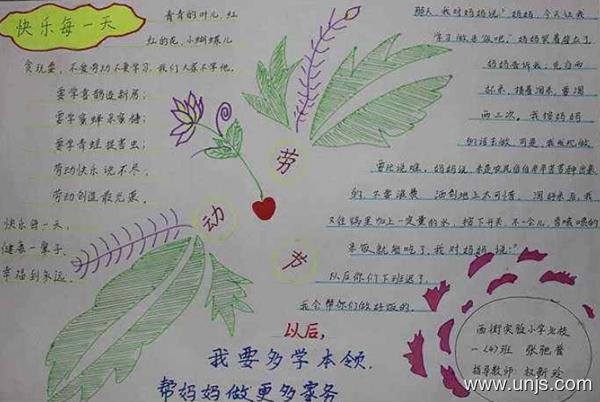 快乐每一天
青青的叶儿,红
红的花,小蝴蝶儿
贪玩耍,不爱劳动不爱学习,我们大家不学他。
要学喜鹊造新房;
要学蜜蜂采蜜糖;
要学青蛙捉害虫;
劳动快乐说不尽,
劳动创造最光荣。
快乐每一天,
健康一辈子,
幸福到永远。
劳
动
节
那天,我对妈妈说:"妈妈,今天让我
学习做米饭吧。"妈妈笑着答应了,
妈妈告诉我:先舀两
杯米,接着淘米,要淘
两三次。我按妈妈
们说去做,可是,我
要比说难。妈妈说:来是农民伯伯辛辛苦苦种出来
的,不要浪费,洒到地上太可惜,淘好米后,我
又往锅里加上一定量的水,按下开关,不一会儿,香喷喷的
米饭就能吃了。我对妈妈说:"
以后你们下班迟了,
我会帮你们做好饭的。
以后,
我要多学本领,
帮妈妈做更多家务
西街实验小学北校
一(4)班 张弛
指导教师 权新玲
www.unjs.com